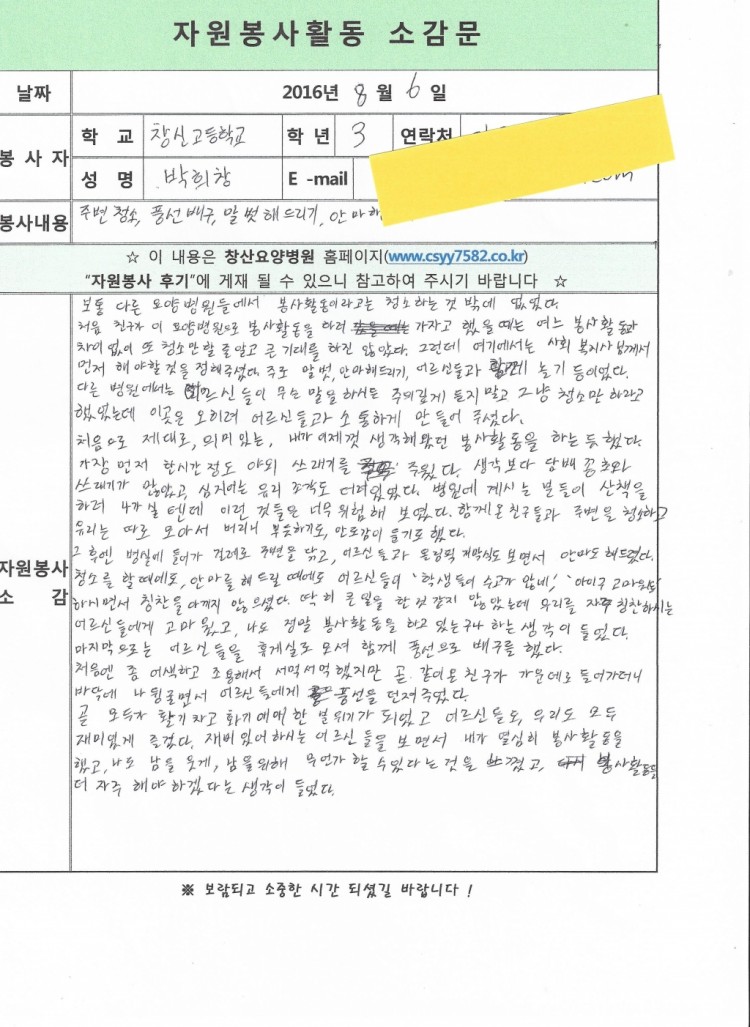 자원봉사활동 소감문
날짜 2016년 8월 6일
봉사자 학 교 창신고등학교 학 년 3 연락처
성 명 박희창 E -mail
봉사내용 주변 청소, 풍선배구, 말벗해드리기, 안마해
☆ 이 내용은 창산요양병원 홈페이지(www.csyy7582.co.kr)
"자원봉사 후기"에 게재 될 수 있으니 참고하여 주시기 바랍니다 ☆
자원봉사
소 감
보통 다른 요양병원들에서 봉사활동이라고는 청소하는것 밖에 없었다.
처음 친구가 이 요양병원으로 봉사활동을 하러 가자고 했을 때는 여느 봉사활동과
차이없이 또 청소만할줄알고 큰 기대를 하진 않았다. 그런데 여기에서는 사회 복지사님께서
먼저 해야할것을 정해주셨다. 주로 말벗, 안마해드리기, 어르신들과 함께 놀기 등이었다.
다른 병원에서는 어르신들이 무슨 말을 하시든 주의깊게 듣지말고 그냥 청소만 하라고
했었는데 이곳은 오히려 어르신들과 소통하게 만들어 주셨다.
처음으로 제대로, 의미있는, 내가 이제껏 생각해왔던 봉사활동을 하는듯 했다.
가장 먼저 한시간 정도 야외 쓰레기를 주웠다. 생각보다 담배 꽁초와
쓰레기가 많았고, 심지어는 유리 조각도 더러있었다. 병원에 계시는 분들이 산책을
하러 나가실 텐데 이런 것들은 너무 위험해 보였다. 함께온 친구들과 주변을 청소하고
유리는 따로 모아서 버리니 뿌듯하기도, 안도감이 들기도 했다.
그 후엔 병실에 들어가 걸레로 주변을 닦고, 어르신들과 올림픽 개막식도 보면서 안마도 해드렸다.
청소를 할때에도, 안마를 해드릴 때에도 어르신들이 '학생들이 수고가 많네', '아이구 고마워라'
하시면서 칭찬을 아끼지 않으셨다. 딱히 큰일을 한것 같지 않았는데 우리를 자주 칭찬하시는
어르신들에게 고마웠고, 나도 정말 봉사활동을 하고 있는구나 하는 생각이 들었다.
마지막으로는 어르신들을 휴게실로 모셔 함께 풍선으로 배구를 했다.
처음엔 좀 어색하고 조용해서 서먹서먹했지만 곧 같이온 친구가 가운데로 들어가더니
바닥에 나뒹굴면서 어르신들에게 풍선을 던져주었다.
곧 모두가 활기차고 화기애애한 분위기가 되었고 어르신들도, 우리도 모두
재미있게 즐겼다. 재미있어하시는 어르신들을 보면서 내가 열심히 봉사활동을
했고, 나도 남을 돕게, 남을위해 무언가 할수있다는 것을 느꼈고, 봉사활동을
더 자주 해야하겠다는 생각이 들었다.
※ 보람되고 소중한 시간 되셨길 바랍니다 !